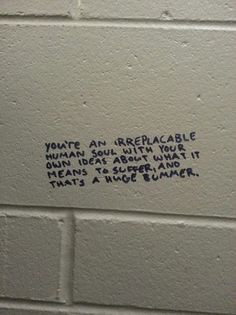 YOU'RE AN IRREPLACABLE
HUMAN SOUL WITH YOUR
OWN IDEAS ABOUT WHAT IT
MEANS TO SUFFER, AND
THAT'S A HUGE BUMMER.